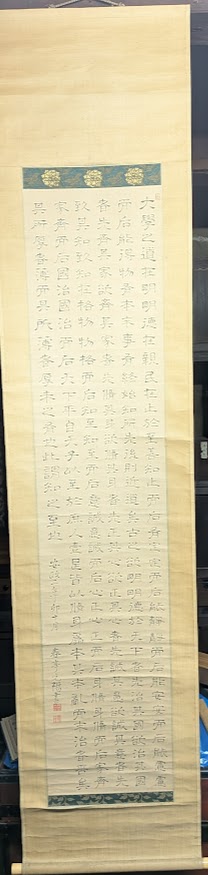 大學之道在明明德在親民在止於至善知止而后有定定而后能靜靜而后能安安而后能慮慮
而后能得物有本末事有終始知所先後則近道矣古之欲明明德於天下者先治其國欲治其國
者先齊其家欲齊其家者先脩其身欲脩其身者先正其心欲正其心者先誠其意欲誠其意者先
致其知致知在格物物格而后知至知至而后意誠意誠而后心正心正而后身脩身脩而后家齊
家齊而后國治國治而后天下平自天子以至於庶人壹是皆以脩身為本其本亂而末治者否矣
其所厚者薄而其所薄者厚未之有也此謂知之至也